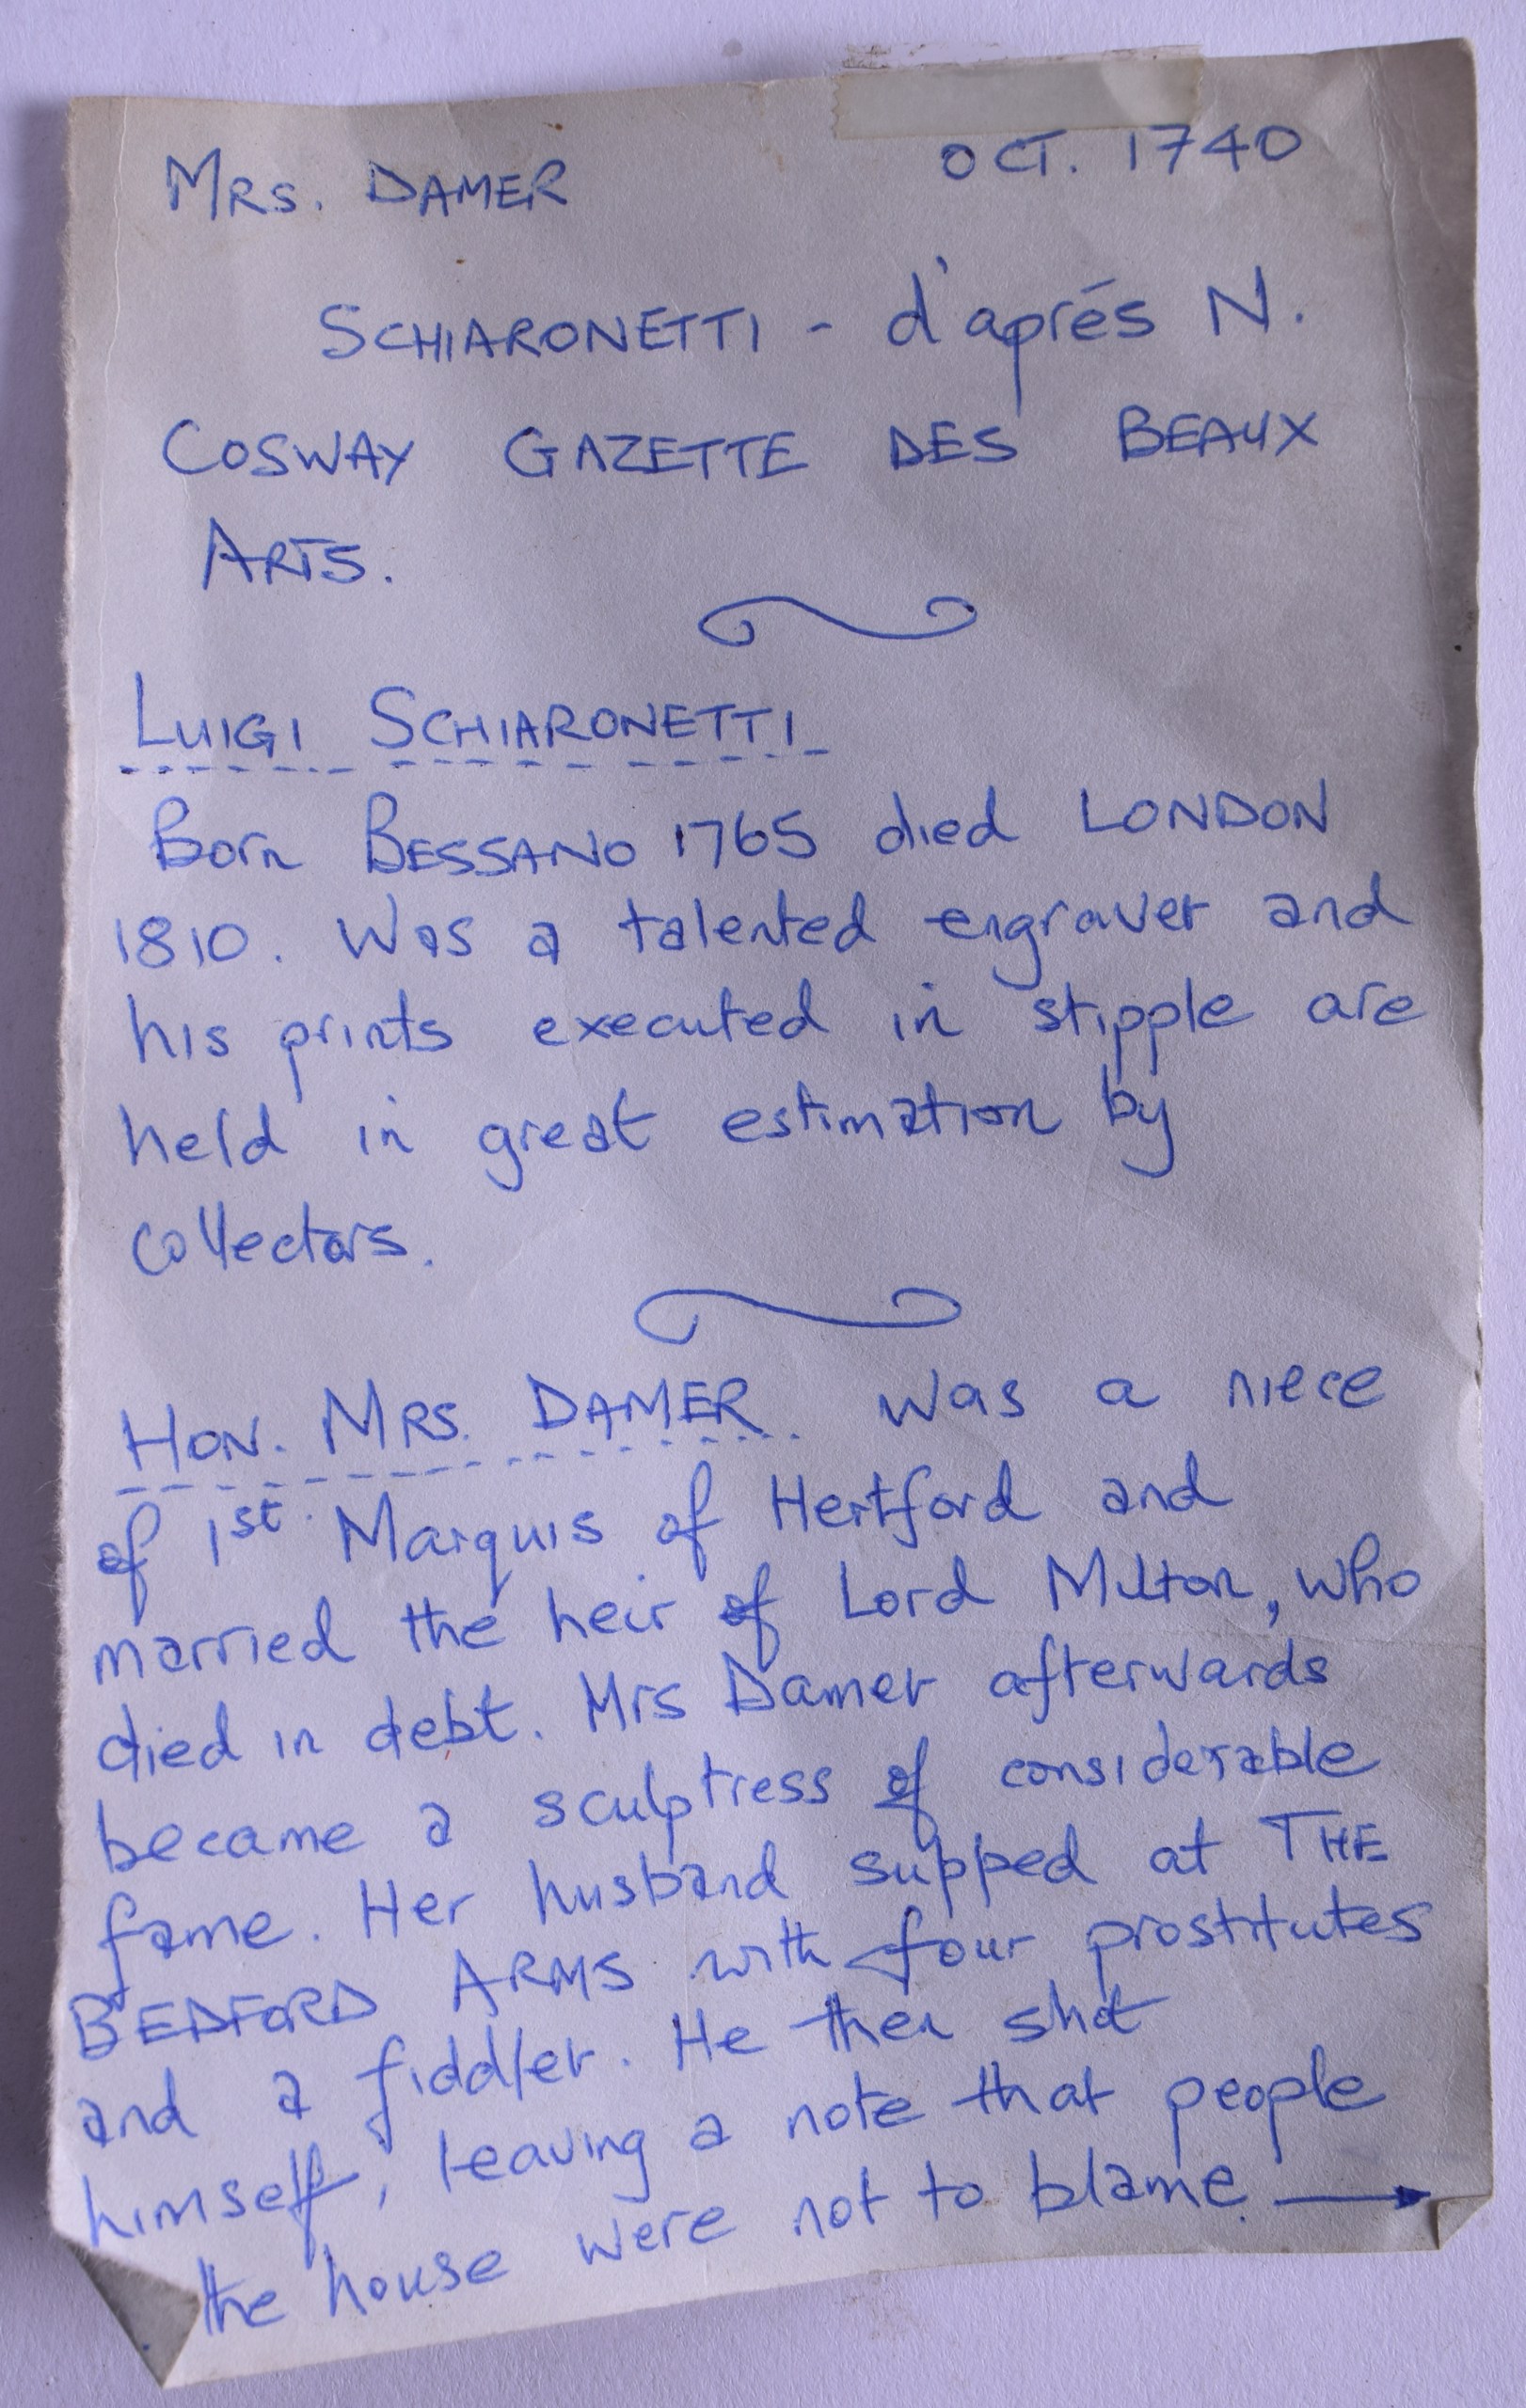 MRS. DAMER OCT. 1740
SCHIARONETTI - d'aprés N.
COSWAY GAZETTE DES BEAUX
ARTS.
LUIGI SCHIARONETTI
Born BESSANO 1765 died LONDON
1810. Was a talented engraver and
his prints executed in stipple are
held in great estimation by
collectors.
HON. MRS. DAMER. was a niece
of 1st. Marquis of Hertford and
married the heir of Lord Milton, who
died in debt. Mrs Damer afterwards
became a sculptress of considerable
fame. Her husband supped at THE
BEDFORD ARMS with four prostitutes
and a fiddler. He then shot
himself, leaving a note that people
the house were not to blame. →